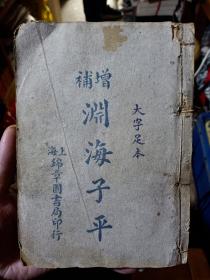 大字足本
增補
淵海子平
上海
錦章圖書局印行